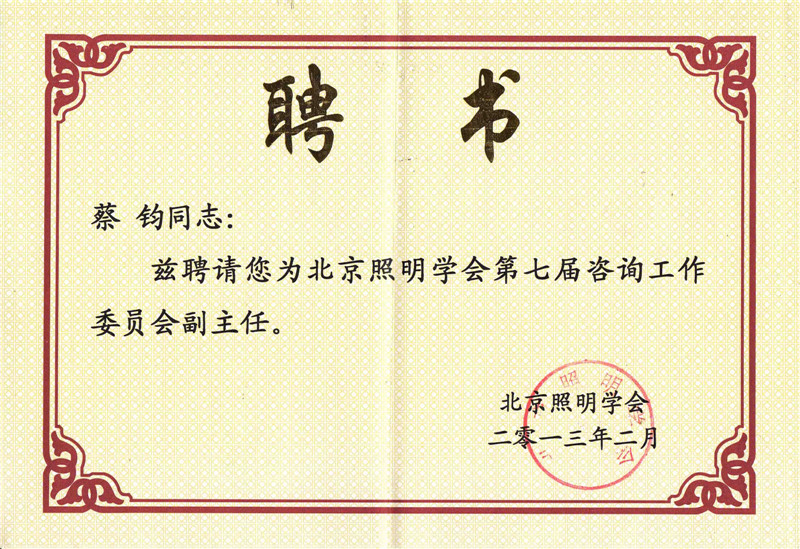 聘 书
蔡 钧同志：
兹聘请您为北京照明学会第七届咨询工作
委员会副主任。
北京照明学会
二零一三年二月